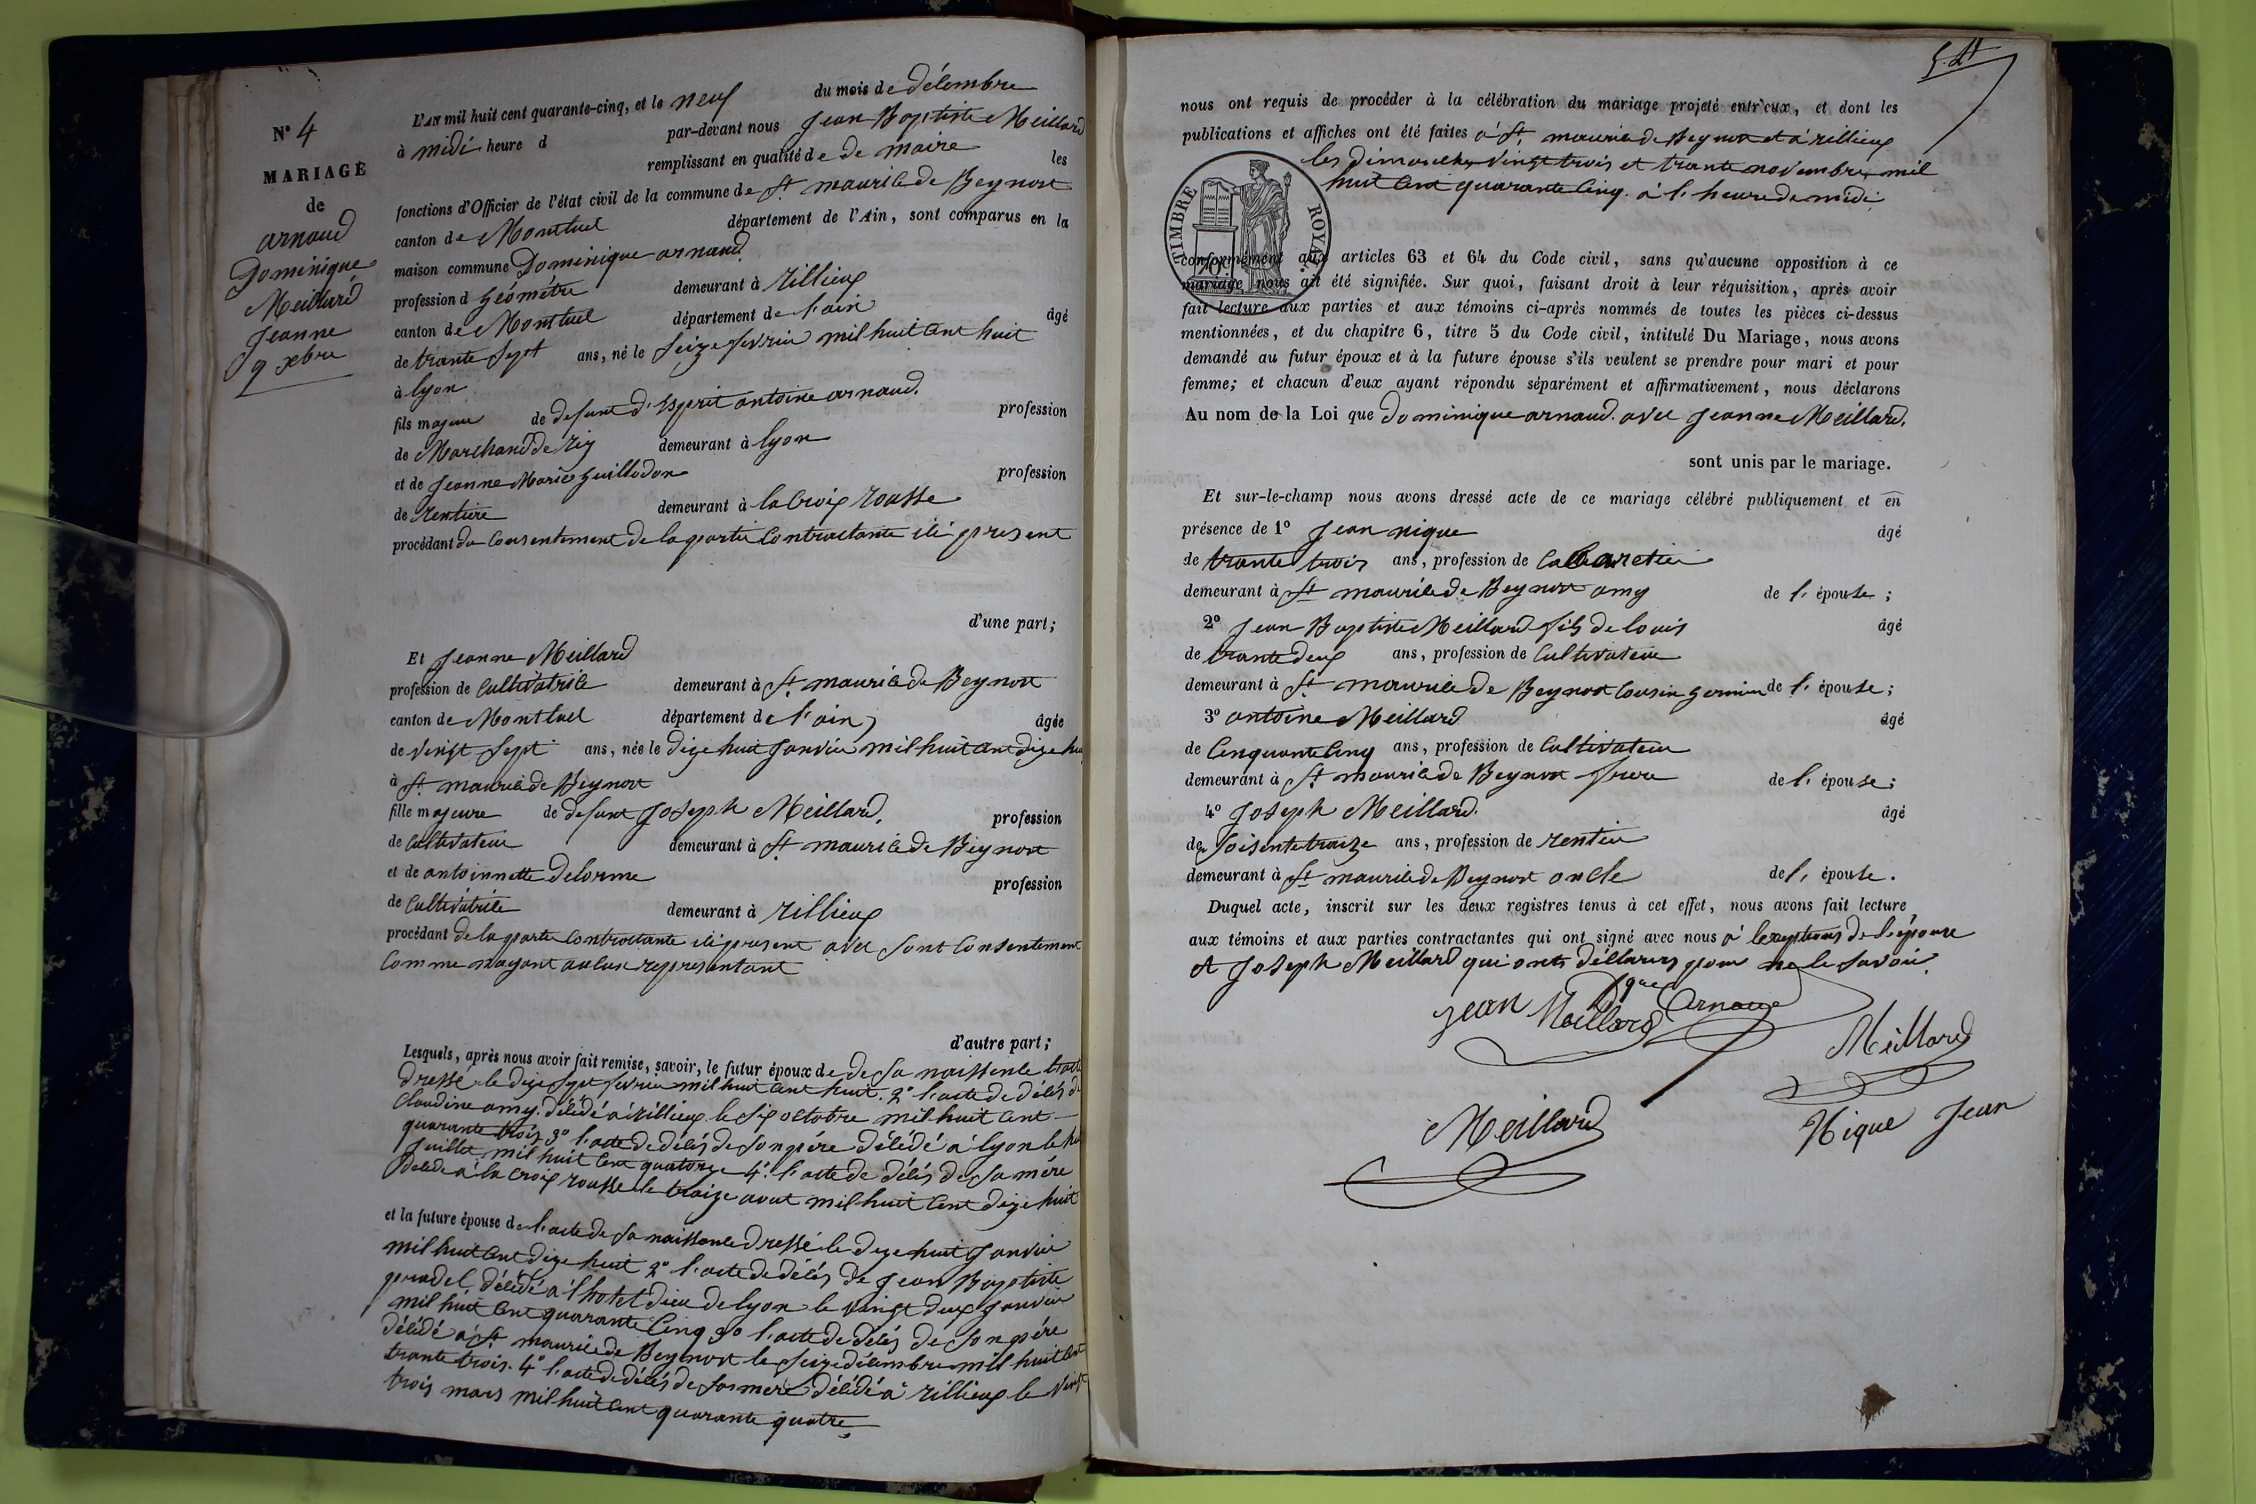 N° 4
MARIAGE
de
arnaud
Dominique
Meillard
Jeanne
9 xbre
L'AN mil huit cent quarante-cinq, et le neuf du mois de décembre
à midi heure d par-devant nous Jean Baptiste Meillard
remplissant en qualité de de maire les
fonctions d'Officier de l'état civil de la commune de St maurice de Beynost
canton de Montluel département de l'Ain, sont comparus en la
maison commune Dominique arnaud
profession d géométre demeurant à rillieux
canton de Montluel département de l'ain âgé
de trante sept ans, né le seize fevrier mil huit cent huit
à lyon
fils majeur de defunt d'Esprit antoine arnaud. profession
de Marchand de demeurant à lyon
et de Jeanne Marie Guillodon profession
de rentiere demeurant à la Croix rousse
procédant du Consentement de la partie Contractante ici present
d'une part;
Et Jeanne Meillard
profession de cultivatrice demeurant à St maurice de Beynost
canton de Montluel département de l'ain âgée
de vingt sept ans, née le dixe huit Janvier mil huit cent dixe hui
à St maurice de Beynost
fille majeure de defunt Joseph Meillard, profession
de Cultivateur demeurant à St maurice de Beynost
et de antoinnette delorme profession
de Cultivatrice demeurant à rillieux
procédant de la partie Contractante ici present avec sont Consentement
Comme nayant aucun representant
d'autre part;
Lesquels, après nous avoir fait remise, savoir, le futur époux de de sa naissence
dressé le dixe sept fevrier mil huit cent huit. 2° l'acte de décés de
Claudine amy. décédé à rillieux le six octobre mil huit cent
quarante trois 3° l'acte de décés de son pére décédé à lyon le
Juillet mil huit cent quatorze 4° l'acte de décés de sa mére
décédé à la croix rousse le traize aout mil huit cent dixe huit
et la future épouse de l'acte de sa naissence dressé le dixe huit Janvier
mil huit cent dixe huit 2° l'acte de décés de Jean Baptiste
pradel, décédé à l'hotel dieu de lyon le vingt deux Janvier
mil huit cent quarante Cinq 3° l'acte de décés de son pére
décédé à St maurice de Beynost le seize décembre mil huit cent
trante trois. 4° l'acte de décés de sa mere décédé à rillieux le vingt
trois mars mil huit cent quarante quatre
nous ont requis de procéder à la célébration du mariage projeté entr'eux, et dont les
publications et affiches ont été faites à St maurice de Beynost et à rillieux
les dimanches vingt trois et trante novembre mil
huit cent quarante Cinq. à l'heure de midi
TIMBRE ROYAL
70c
conformément aux articles 63 et 64 du Code civil, sans qu'aucune opposition à ce
mariage nous ait été signifiée. Sur quoi, faisant droit à leur réquisition, après avoir
fait lecture aux parties et aux témoins ci-après nommés de toutes les pièces ci-dessus
mentionnées, et du chapitre 6, titre 5 du Code civil, intitulé Du Mariage, nous avons
demandé au futur époux et à la future épouse s'ils veulent se prendre pour mari et pour
femme; et chacun d'eux ayant répondu séparément et affirmativement, nous déclarons
Au nom de la Loi que dominique arnaud. avec Jeanne Meillard.
sont unis par le mariage.
Et sur-le-champ nous avons dressé acte de ce mariage célébré publiquement et en
présence de 1° Jean nique âgé
de trante trois ans, profession de Cabaretier
demeurant à St maurice de Beynost amy de l'épouse;
2° Jean Baptiste Meillard fils de louis âgé
de trante deux ans, profession de Cultivateur
demeurant à St maurice de Beynost Cousin germin de l'épouse;
3° antoine Meillard âgé
de Cinquante Cinq ans, profession de Cultivateur
demeurant à St maurice de Beynost frere de l'épouse;
4° Joseph Meillard. âgé
de Soisente traize ans, profession de rentier
demeurant à St maurice de Beynost oncle de l'épouse.
Duquel acte, inscrit sur les deux registres tenus à cet effet, nous avons fait lecture
aux témoins et aux parties contractantes qui ont signé avec nous à l'exeptions de l'épouse
et Joseph Meillard qui onts déllarez pour ne le savoir.
Dque Arnaud
Jean Meillard
Meillard
Meillard
Nique Jean